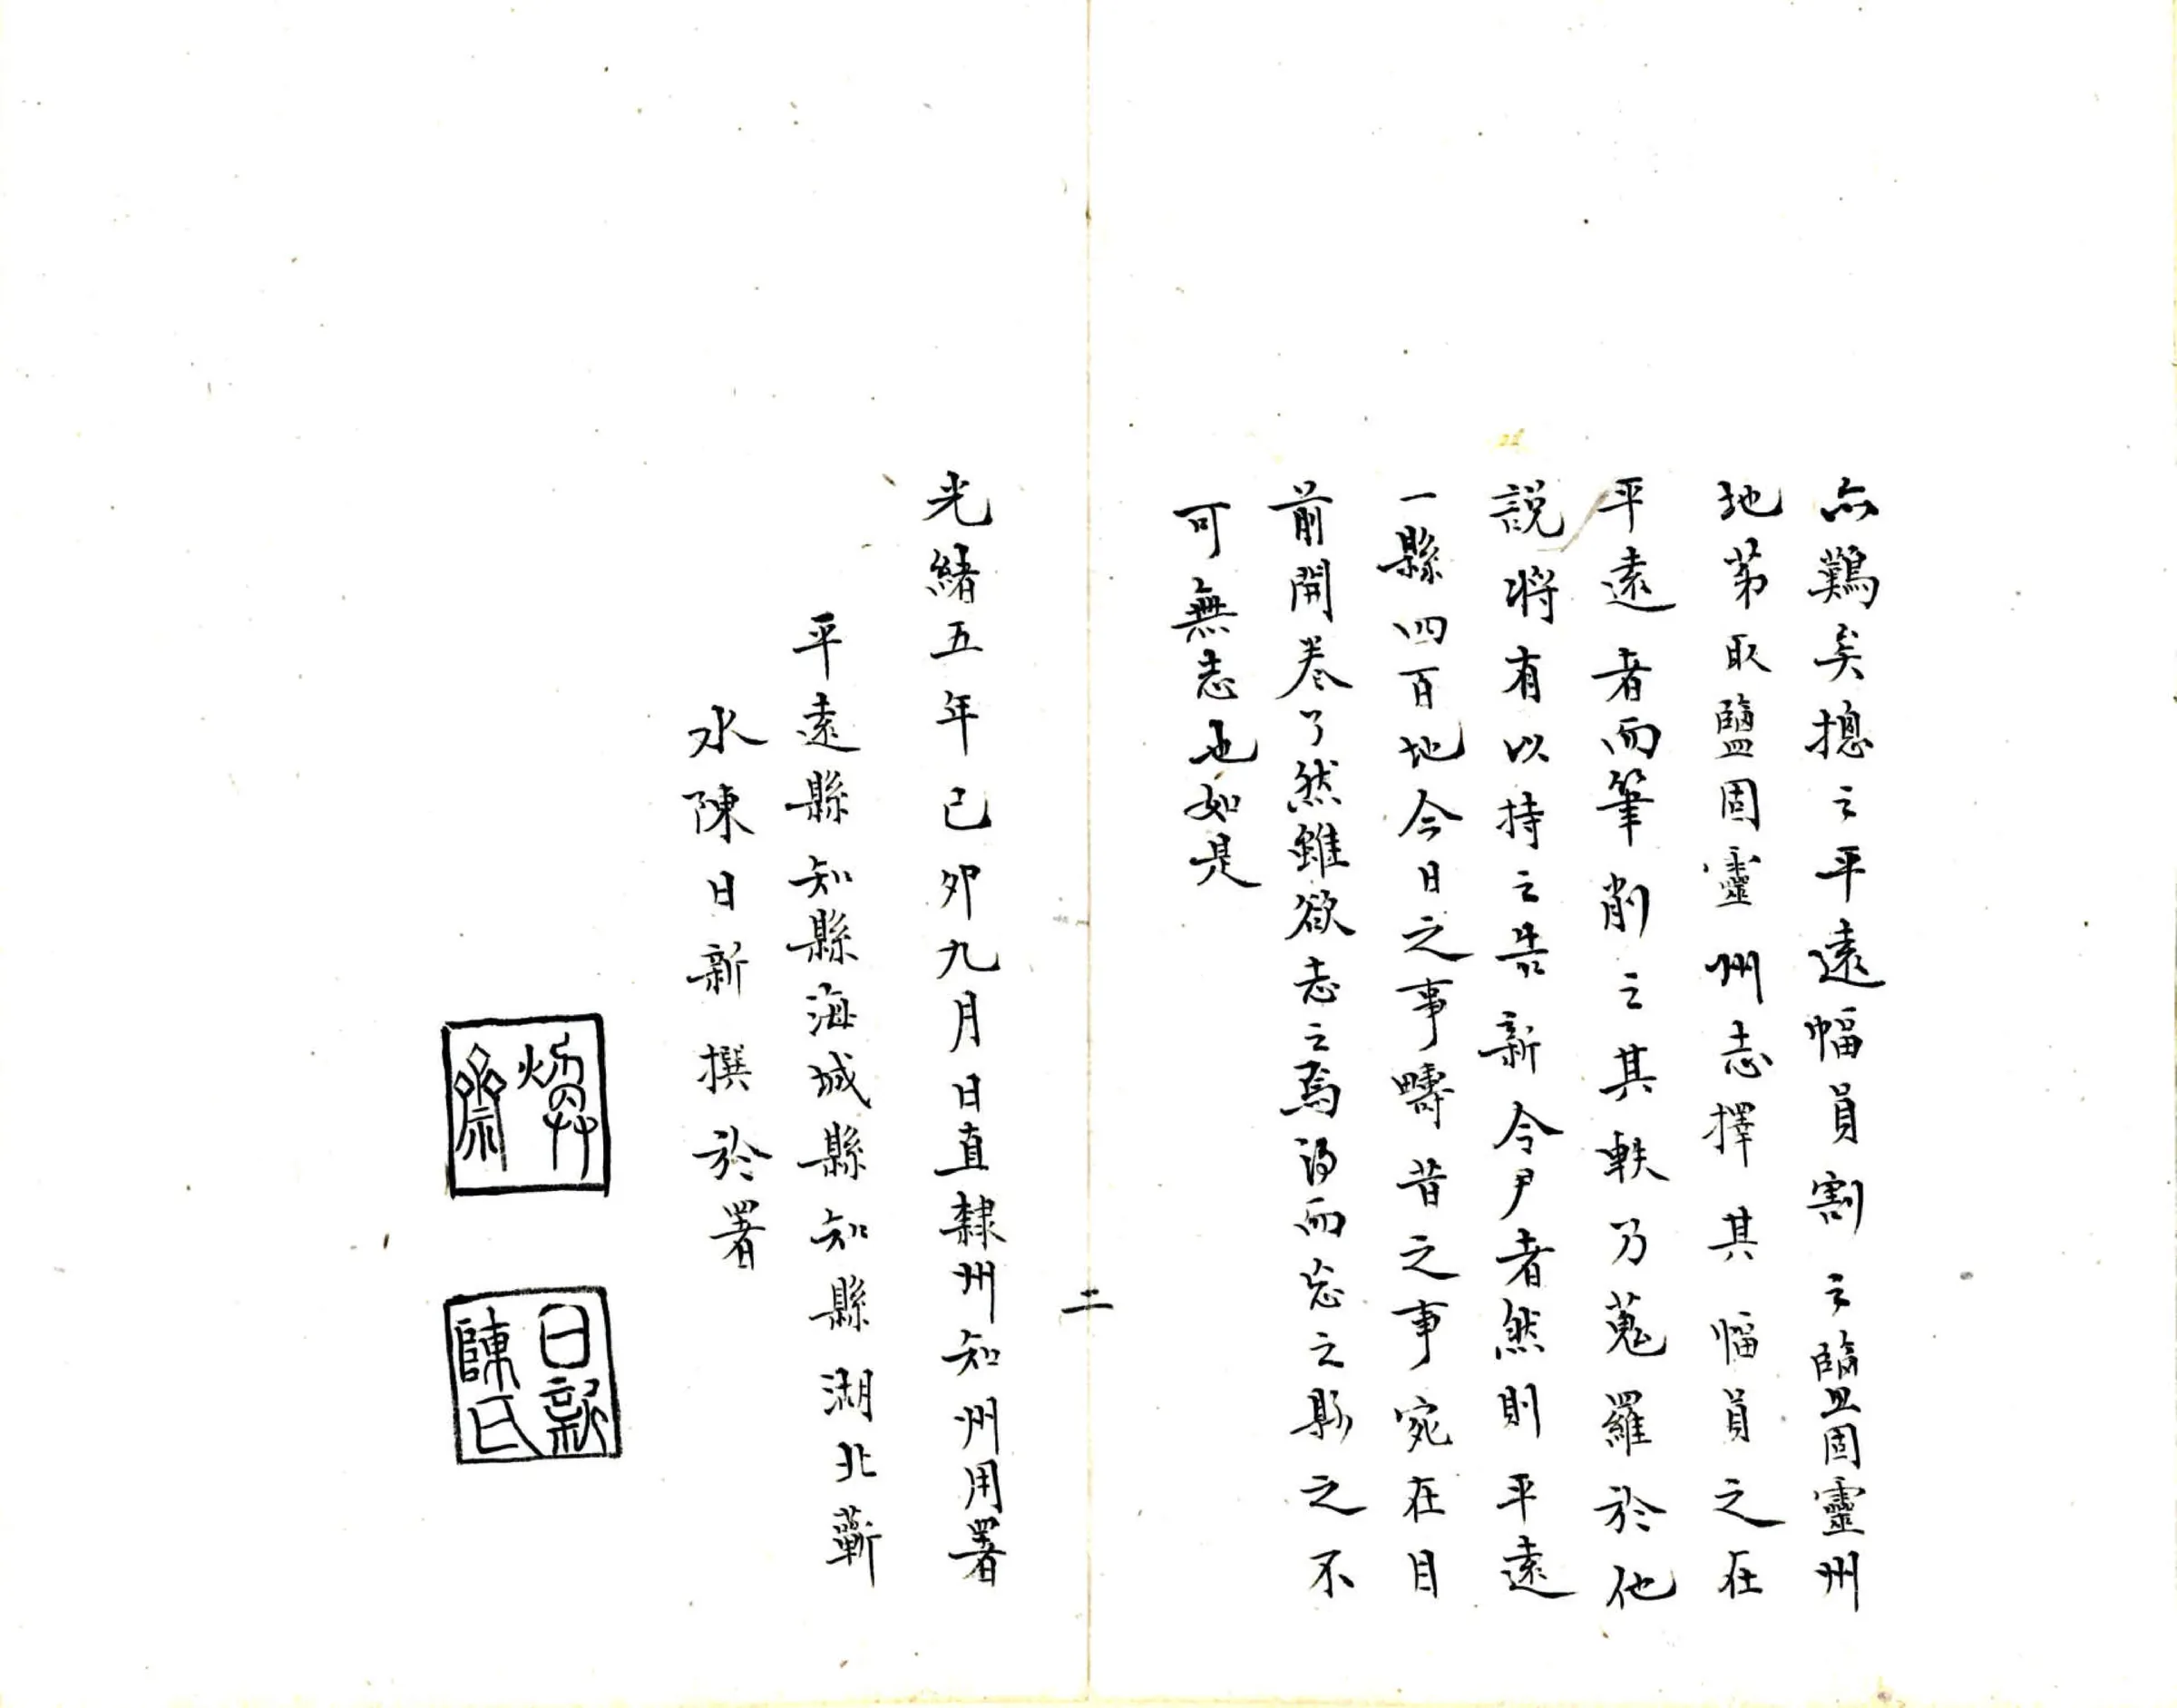 亦難矣揔之平遠幅員割之鹽固靈州
地苐取鹽固靈州志擇其幅員之在
平遠者而筆削之其軼乃蒐羅於他
說將有以持之告新令尹者然則平遠
一縣四百地今日之事疇昔之事宛在目
前開卷了然雖欲志之焉得而忘之縣之不
可無志也如是
光緒五年已卯九月日直隸州知州用署
平遠縣知縣海城縣知縣湖北蘄
水陳日新撰於署
二
齋
日新
陳氏